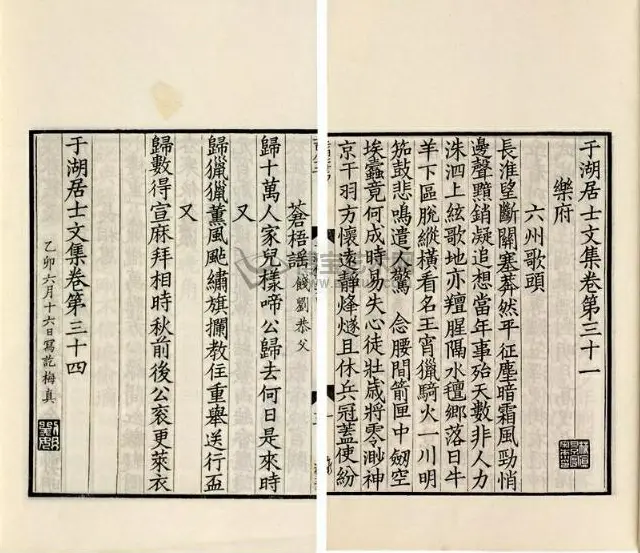 于湖居士文集卷第三十一
樂府
六州歌頭
長淮望斷關塞莽然平 征塵暗霜風勁悄
邊聲黯銷凝追想當年事殆天數非人力
洙泗上絃歌地亦羶腥隔水氊鄉落日牛
羊下區脫縱橫看名王宵獵騎火一川明
笳鼓悲鳴遣人驚 念腰間箭匣中劒空
埃蠹竟何成時易失心徒壯歲將零渺神
京干羽方懷遠靜烽燧且休兵冠蓋使紛
蒼梧謡餞劉恭父
歸十萬人家兒樣啼公歸去何日是來時
又
歸獵獵薰風颭繡旗攔教住重舉送行盃
又
歸數得宣麻拜相時秋前後公衮更萊衣
于湖居士文集卷第三十四
乙卯六月十六日寫訖梅真